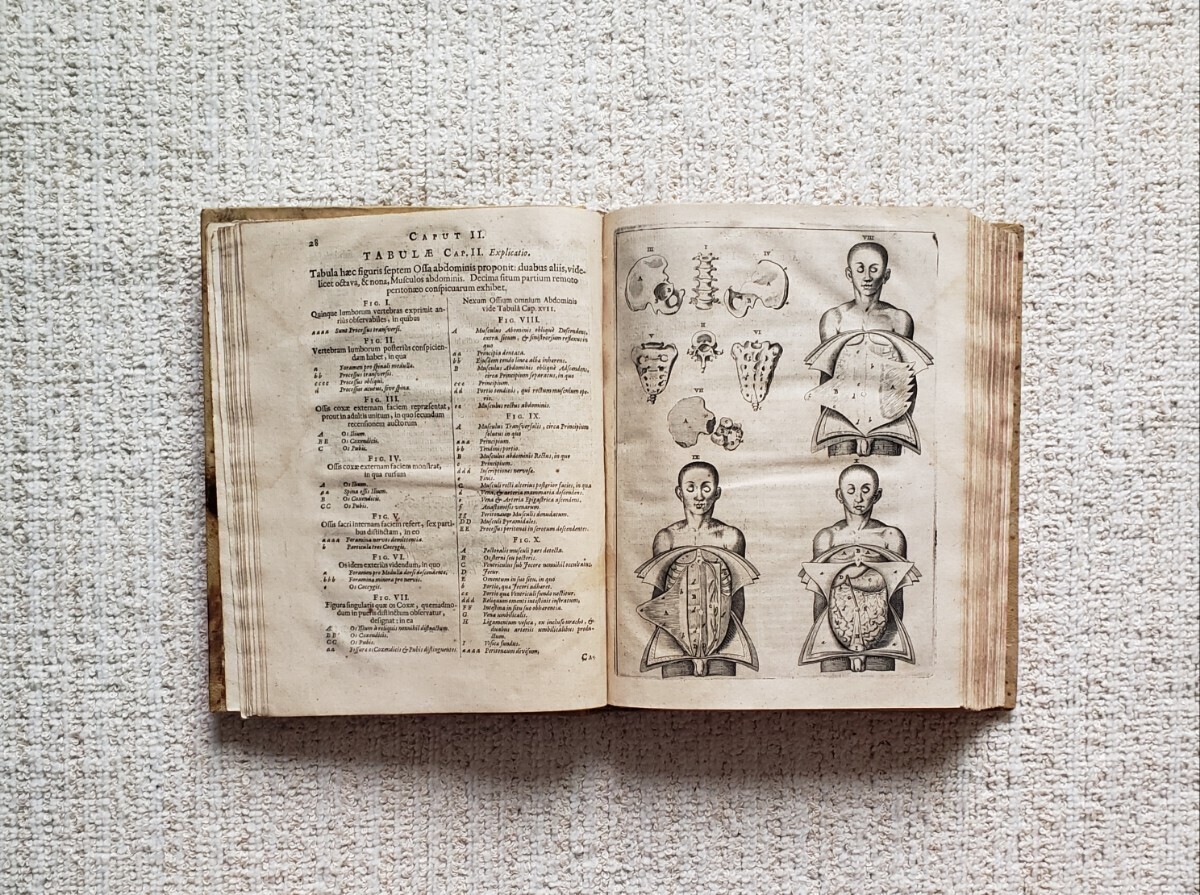 28
CAPUT II.
TABULÆ CAP. II. Explicatio.
Tabula hæc figuris septem Ossa abdominis proponit: duabus aliis, vide-
licet octava, & nona, Musculos abdominis. Decima situm partium remoto
peritonæo conspicuarum exhibet.
FIG. I.
Quinque lumborum vertebras exprimit an-
observabiles, in quibus
aaaa Sunt Processus transversi.
FIG. II.
Vertebram lumborum posterius conspicien-
dam habet, in qua
a Foramen pro spinali medulla.
bb Processus transversi.
cccc Processus obliqui.
d Processus acutus, sive spina.
FIG. III.
Ossis coxæ externam faciem repræsentat,
prout in adultis unitum, in quo secundum
recensionem auctorum
A Os Ilium.
BB Os Coxendicis.
C Os Pubis.
FIG. IV.
Ossis coxæ externam faciem monstrat,
in qua rursum
A Os Ilium.
aa Spina ossis Ilium.
B Os Coxendicis.
CC Os Pubis.
FIG. V.
Ossis sacri internam faciem refert, sex parti-
bus distinctam, in eo
aaaa Foramina nervos
b Particula tres Coccygis.
FIG. VI.
Os idem exterius videndum, in quo
a Foramen pro Medulla dorsi descendente.
bbb Foramina minora pro nervis.
c Os Coccygis.
FIG. VII.
Figura singularis quæ os Coxæ, quemadmo-
dum in pueris distinctum observatur,
designat: in ea
A Os Ilium à reliquis nonnihil distinctum.
BB Os Coxendicis.
CC Os Pubis.
aa Fissura os Coxendicis & Pubis distinguentes.
Nexum Ossium omnium Abdominis
vide Tabulâ Cap. XVII.
FIG. VIII.
A Musculus Abdominis obliquè Descendens,
extra situm, & sinistrorsum reflexus in
quo
aa Principia dentata.
bb Ejusdem tendo linea alba inhærens.
B Musculus Abdominis obliquè Adscendens,
circa Principium separatus, in quo
ccc Principium.
dd Portio tendinis, qui rectum musculum ope-
rit.
ee Musculus rectus abdominis.
FIG. IX.
A Musculus Transversalis, circa Principium
solutus in quo
aaa Principium.
bb Tendinis portio.
B Musculus abdominis Rectus, in quo
c Principium.
ddd Inscriptiones nervosæ.
e Finis.
C Musculi recti alterius posterior facies, in qua
d Vena, & arteria mammaria descendens.
e Vena & Arteria Epigastrica ascendens.
f Anastomosis venarum.
gg Peritonæum Musculis denudatum.
DD Musculi Pyramidales.
EE Processus peritonæi in scrotum descendentes.
FIG. X.
A Pectoralis musculi pars detecta.
B Os sterni seu pectoris.
C Ventriculus sub Jecore nonnihil
D Jecur.
E Omentum in suo situ, in quo
b Portio, quæ Jecori adhæret.
cc Portio qua Ventriculi fundo nectitur.
ddd Reliquum omenti intestinis instratum,
FF Intestina in situ suo cohærentia.
G Vena umbilicalis.
H Ligamentum vesicæ, ex incluso uracho, &
duabus arteriis umbilicalibus
I Vesicæ fundus.
aaaa Peritonæum divisum,
CA-
VIII
III
I
IV
V
II
VI
VII
IX
X